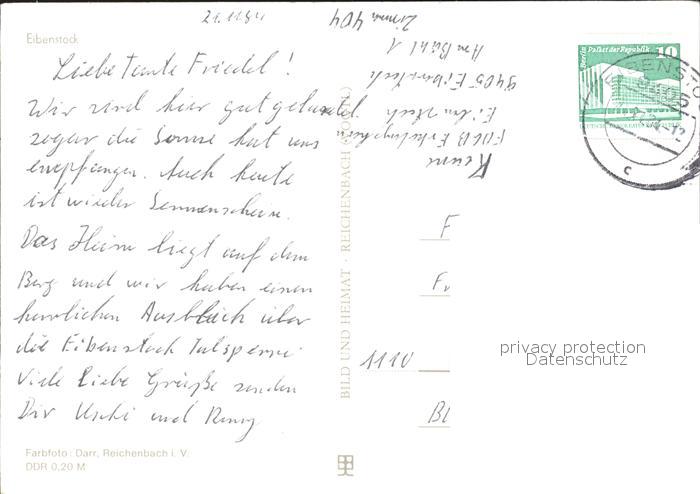 21.11.84
Eibenstock
Liebe Tante Friedel!
Wir sind hier gut gelandet
sogar die Sonne hat uns
empfangen. Auch heute
ist wieder Sonnenschein.
Das Heim liegt auf dem
Berg und wir haben einen
herrlichen Ausblick über
die Eibenstock Talsperre
Viele Liebe Grüße senden
Dir Uschi und
Farbfoto: Darr, Reichenbach i. V.
DDR 0,20 M
BILD UND HEIMAT · REICHENBACH
FDGB Erholungsheim
Eibenstock
9405 Eibenstock
Am Bühl 1
Zimmer 404
Berlin Palast der Republik 10
F
1110
Bl
privacy protection
Datenschutz